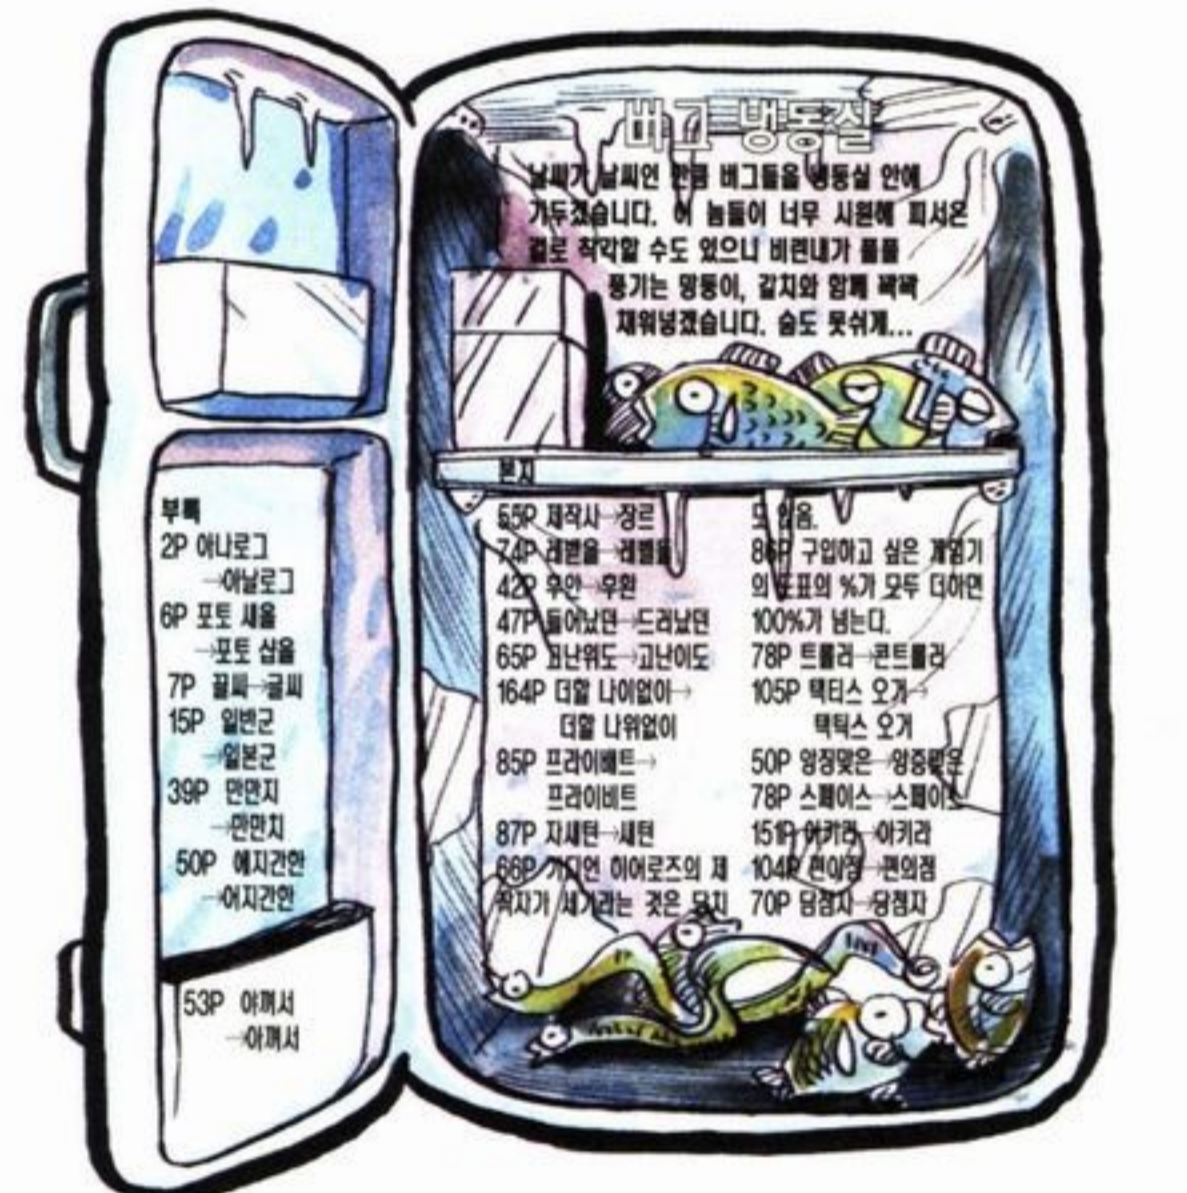 버그 냉동실
날씨가 날씨인 만큼 버그들을 냉동실 안에
가두겠습니다. 이 놈들이 너무 시원해 피서온
걸로 착각할 수도 있으니 비린내가 풀풀
풍기는 망둥이, 갈치와 함께 꽉꽉
채워넣겠습니다. 숨도 못쉬게...
부록
2P 아나로그
→아날로그
6P 포토 셔을
→포토 샵을
7P 끌씨→글씨
15P 일반군
→일본군
39P 만만지
→만만치
50P 에지간한
→어지간한
53P 야껴서
→아껴서
본지
55P 제작사→장르
74P 레벧을→레벨을
42P 후안→후환
47P 들어났던→드러났던
65P 고난위도→고난이도
164P 더할 나이없이→
더할 나위없이
85P 프라이배트→
프라이비트
87P 자세턴→세턴
66P 가디언 히어로즈의 제
작자가 세가라는 것은 당치
도 않음.
86P 구입하고 싶은 게임기
의 도표의 %가 모두 더하면
100%가 넘는다.
78P 트롤러→콘트롤러
105P 택티스 오거→
택틱스 오거
50P 앙징맞은→앙증맞은
78P 스페이스→스페이스
151P 어키라→아키라
104P 편이점→편의점
70P 담첨자→당첨자